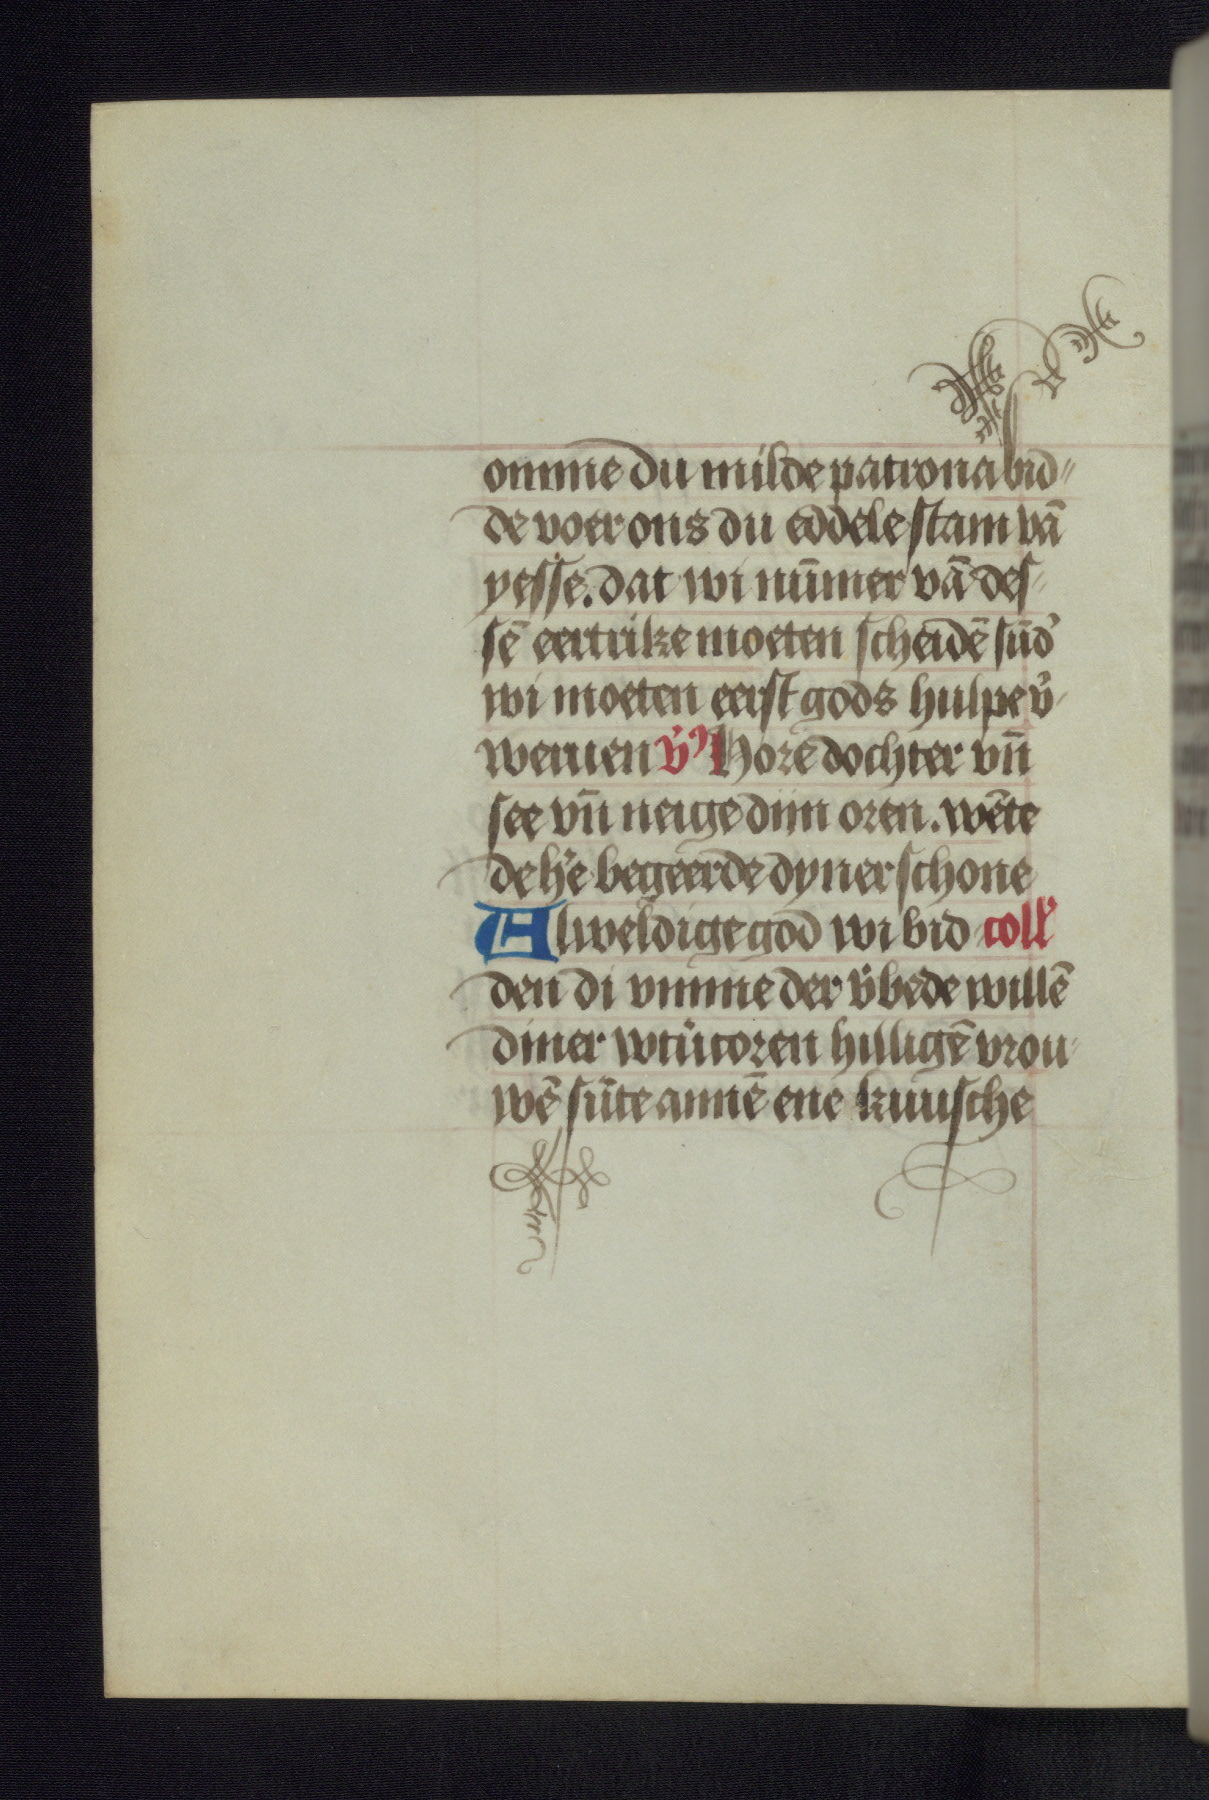 omme du milde patrona bid-
de voer ons du eddele stam vā
yesse. dat wi nūmer vā des-
sē eertrike moeten scheidē sūd'
wi moeten eerst gods hulpe v̄-
weruen v̄s Hore dochter vn̄
see vn̄ neige dijn oren. wēte
de h'e begeerde dyner schone
Alweldige god wi bid coll'
den di vmme der v̄bede willē
diner wtūcoren hilligē vrou-
wē sūte annē ene kuusche